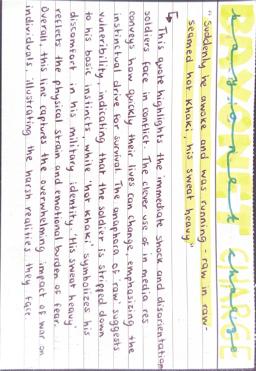 bayonet charge
"Suddenly he awoke and was running - raw in raw-
seamed hot khaki, his sweat heavy."
This quote highlights the immediate shock and disorientation
soldiers face in conflict. The clever use of in media res
conveys how quickly their lives can change, emphasizing the
instinctual drive for survival. The anaphora of 'raw' suggests
vulnerability, indicating that the soldier is stripped down
to his basic instincts, while 'hot khaki' symbolizes his
discomfort in his military identity. 'His sweat heavy'
reflects the physical strain and emotional burden of fear.
Overall, this line captures the overwhelming impact of war on
individuals, illustrating the harsh realities they face